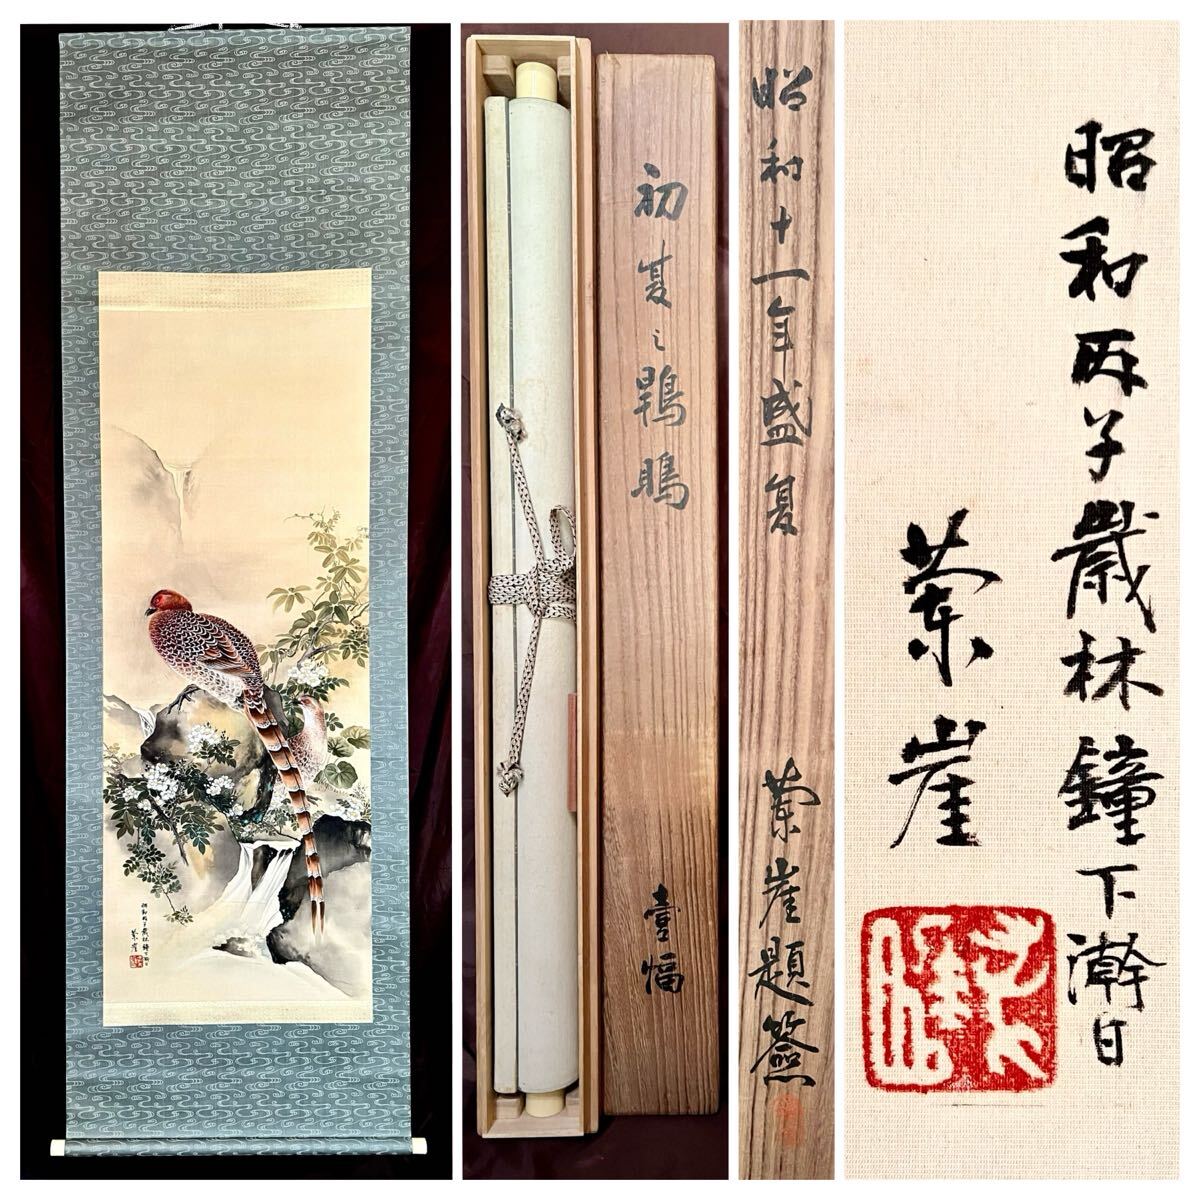 初夏之
壹幅
昭和十一年盛夏
蘭崖題簽
昭和丙子歳林鐘下澣日
蘭崖